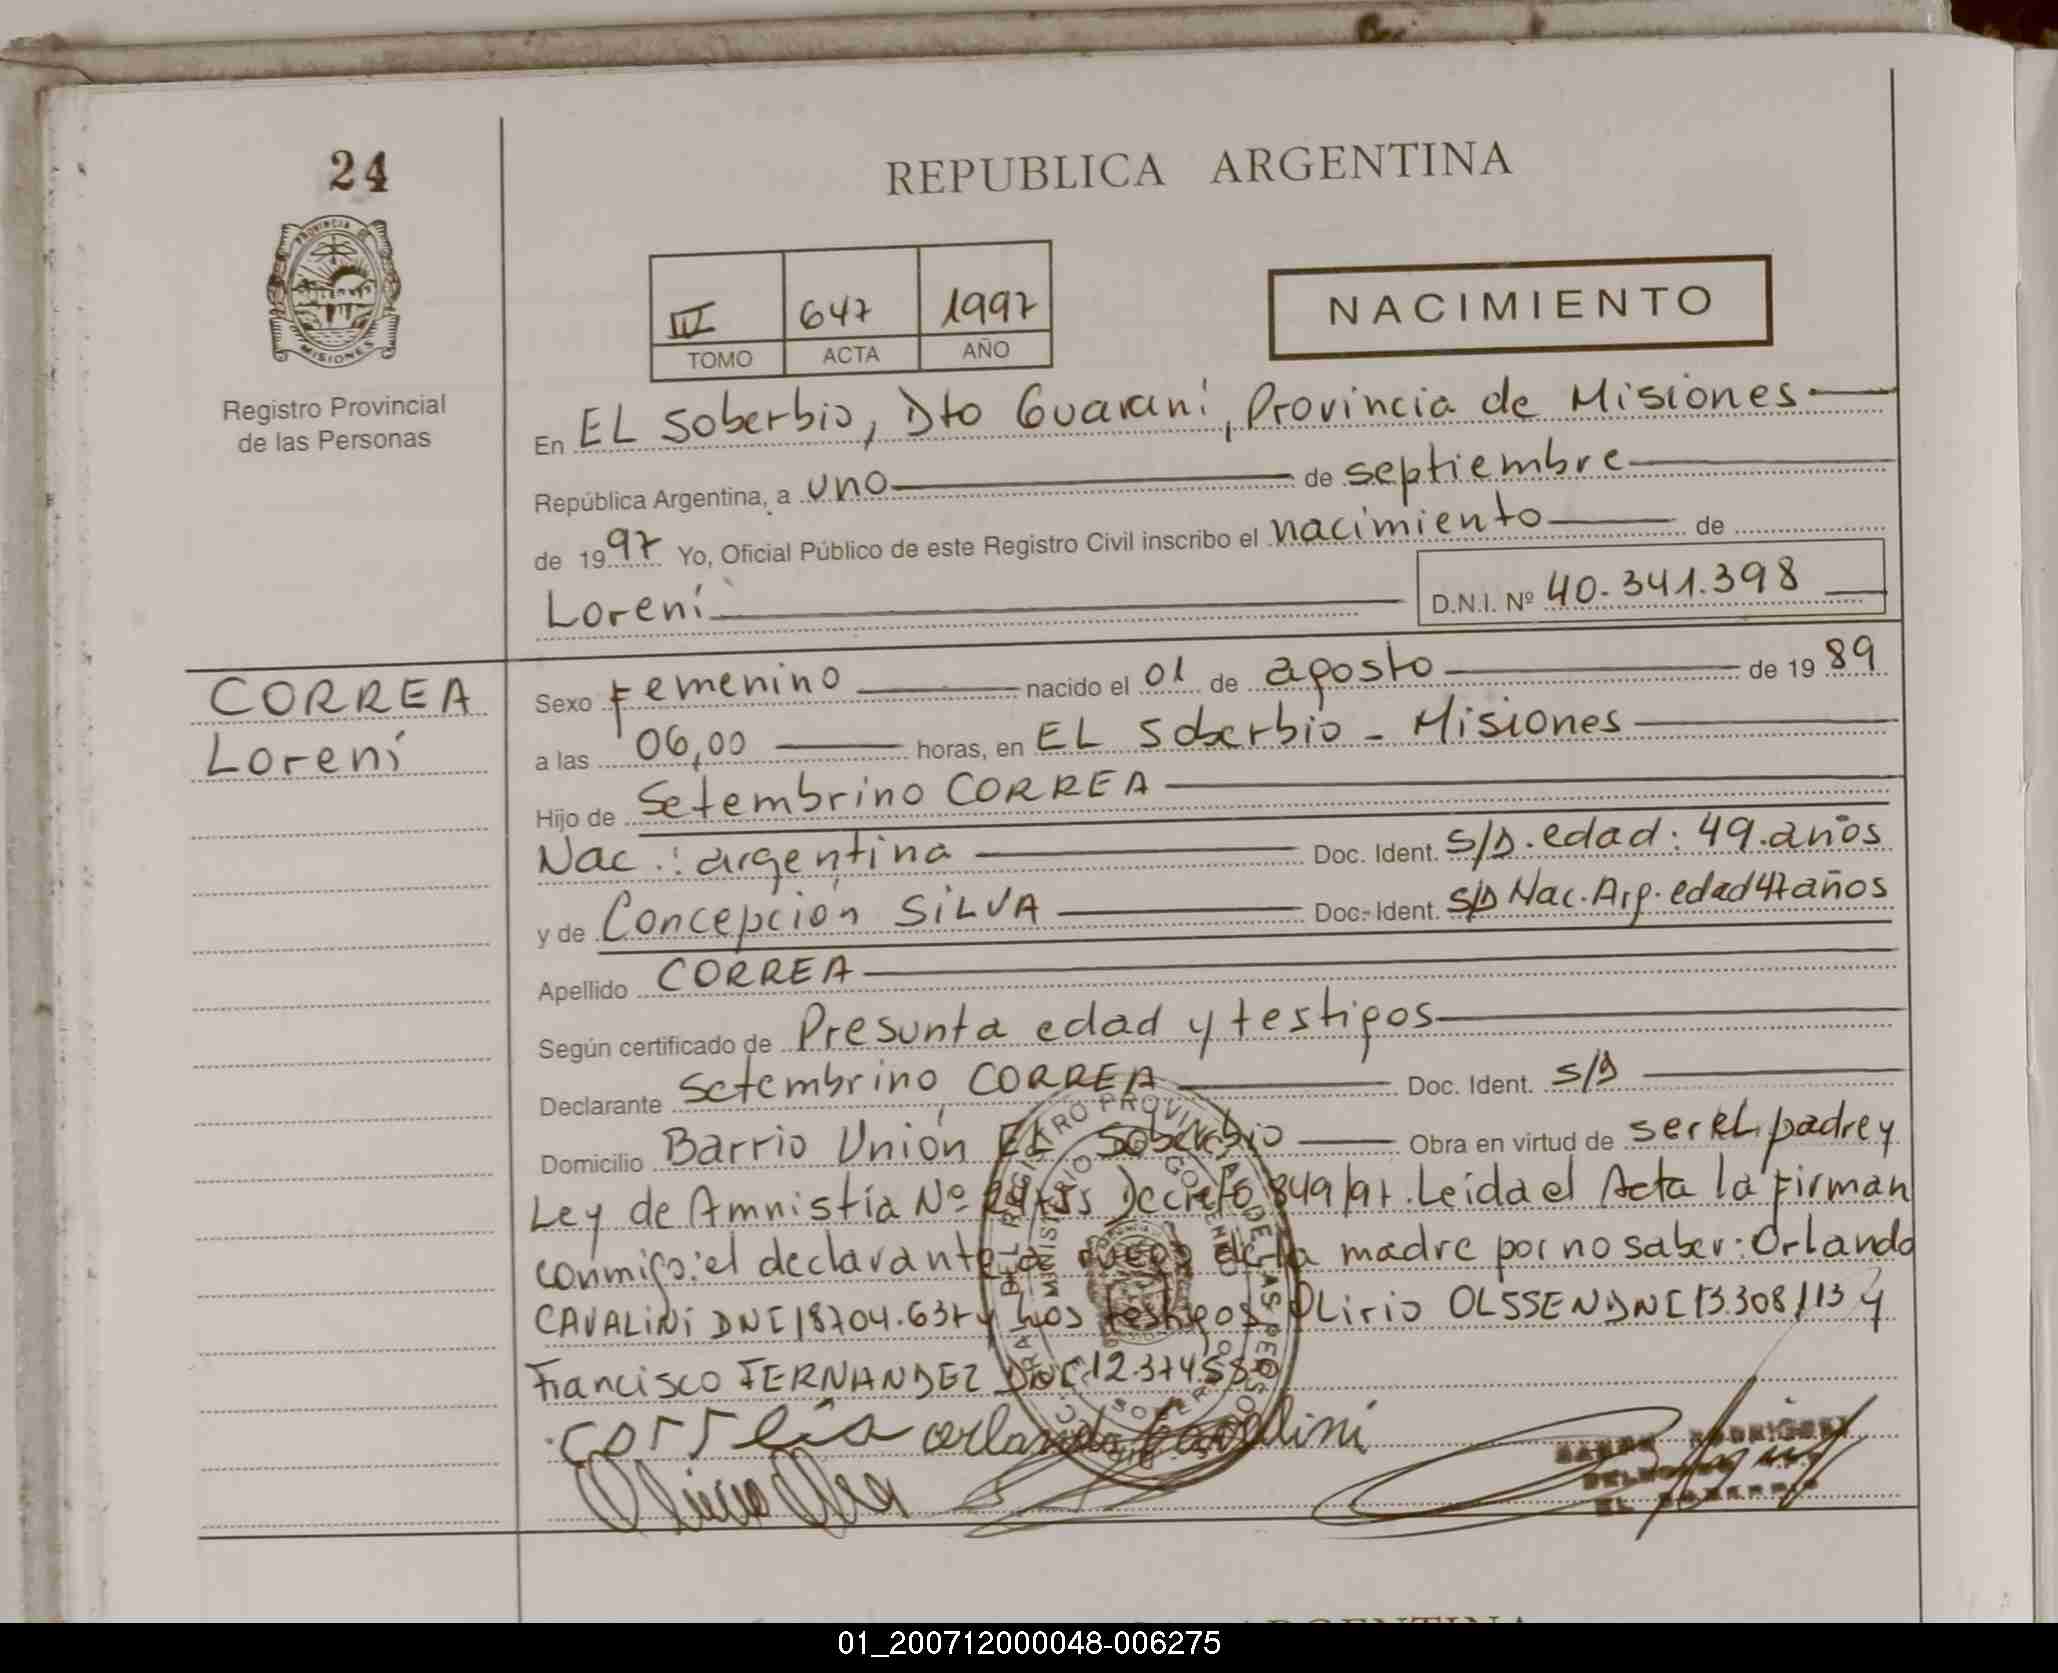 24
REPUBLICA ARGENTINA
PROVINCIA DE
MISIONES
Registro Provincial
de las Personas
III 647 1997
TOMO ACTA AÑO
NACIMIENTO
En EL Soberbio, Dto Guaraní, Provincia de Misiones
República Argentina, a uno de septiembre
de 1997 Yo, Oficial Público de este Registro Civil inscribo el nacimiento de
Lorení D.N.I. Nº 40.341.398
CORREA
Lorení
Sexo Femenino nacido el 01 de agosto de 1989
a las 06,00 horas, en EL Soberbio - Misiones
Hijo de Setembrino CORREA
Nac.: argentina Doc. Ident. S/D. edad: 49.años
y de Concepción SILVA Doc. Ident. S/D Nac. Arg. edad 47 años
Apellido CORREA
Según certificado de Presunta edad y testigos
Declarante Setembrino CORREA Doc. Ident. S/D
Domicilio Barrio Unión EL Soberbio Obra en virtud de ser EL padre y
Ley de Amnistía Nº Decreto 849/97. Leída el Acta la firman
conmigo: el declarante a ruego de la madre por no saber: Orlando
CAVALINI DNI 18704.637 y Los testigos OLirio OLSSEN DNI 13.308113 y
Francisco FERNANDEZ DNI 12.374.580
correia orlando Cavalini
RODRIGUEZ
EL SOBERBIO
ARGENTINA
01_200712000048-006275